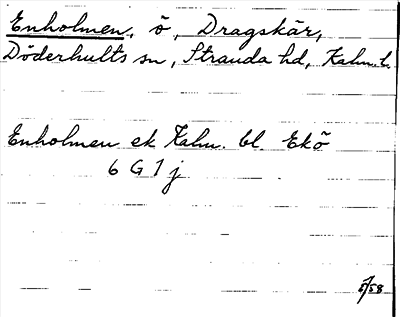 Enholmen, ö, Dragskär,
Döderhults sn, Stranda hd, Kalm. l.
Enholmen ek Kalm. bl. Ekö
6 G 1 j
/58